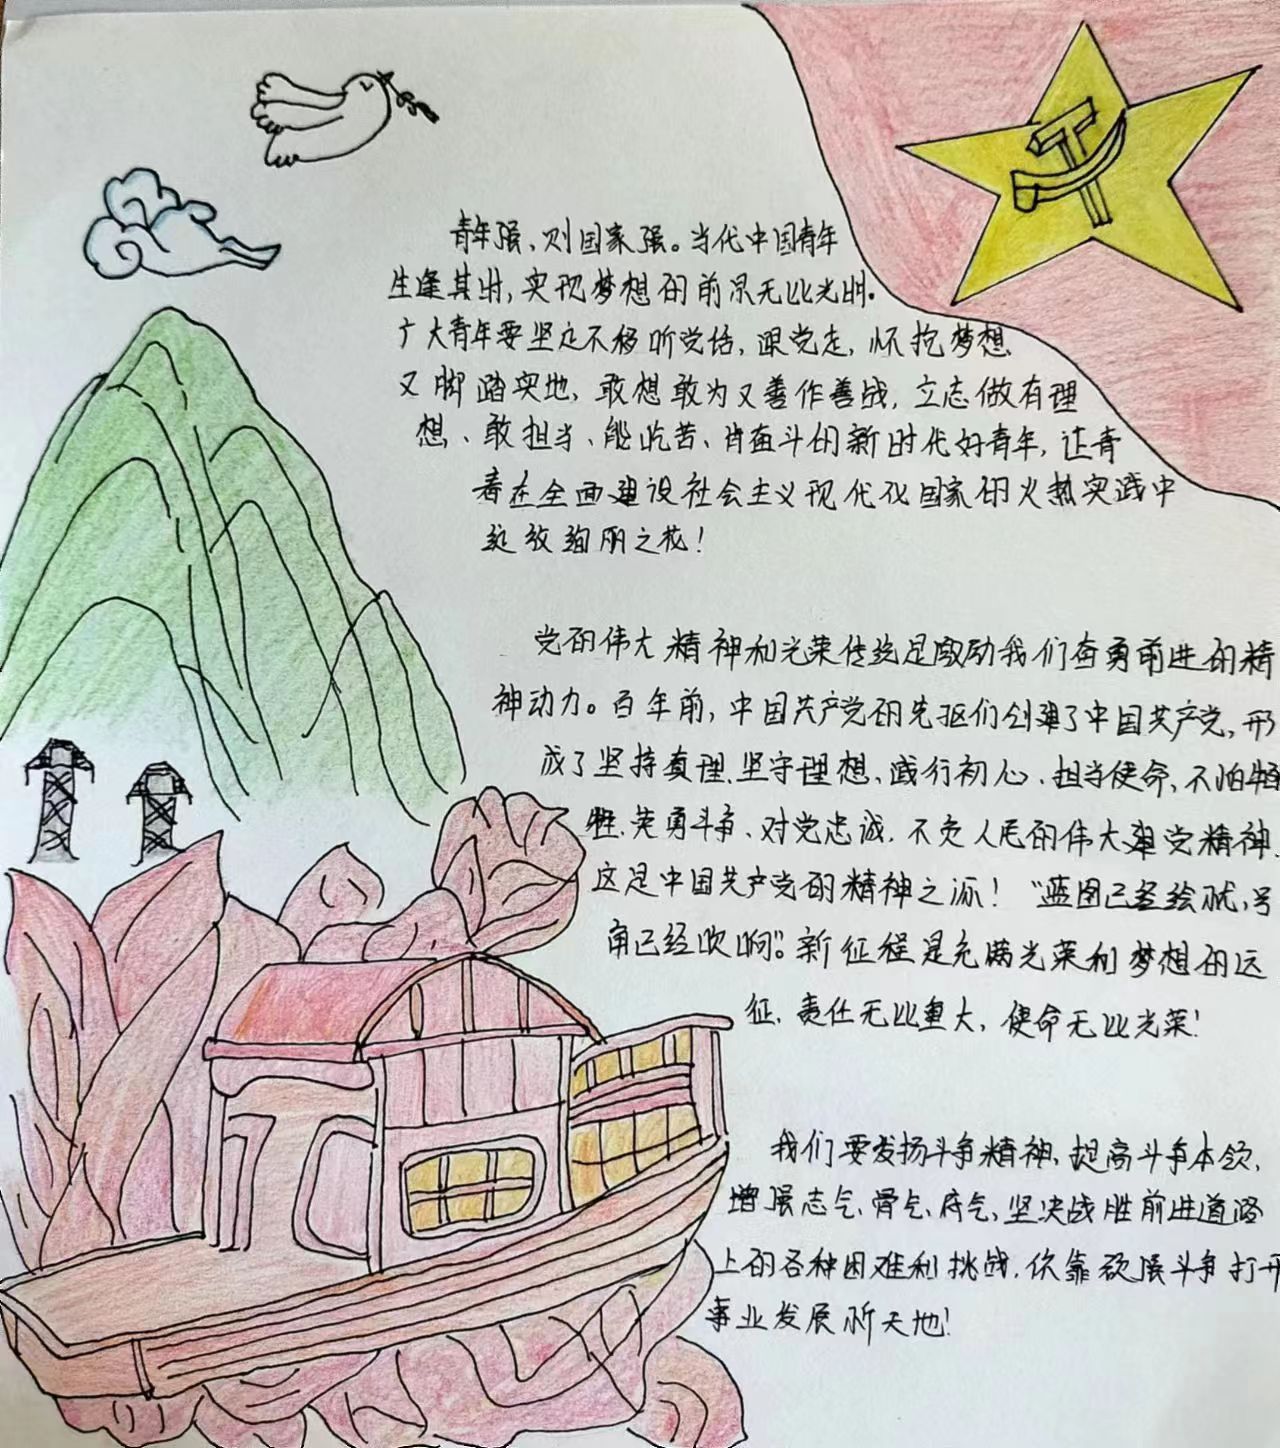 青年强、则国家强。当代中国青年
生逢其时，实现梦想的前景无比光明。
广大青年要坚定不移听党话，跟党走，怀抱梦想
又脚踏实地，敢想敢为又善作善成，立志做有理
想、敢担当、能吃苦、肯奋斗的新时代好青年，让青
春在全面建设社会主义现代化国家的火热实践中
绽放绚丽之花！
党的伟大精神和光荣传统是激励我们奋勇前进的精
神动力。百年前，中国共产党的先驱们创建了中国共产党，形
成了坚持真理、坚守理想、践行初心、担当使命，不怕牺
牲、英勇斗争、对党忠诚，不负人民的伟大建党精神，
这是中国共产党的精神之源！“蓝图已经绘就，号
角已经吹响”。新征程是充满光荣和梦想的远
征，责任无比重大，使命无比光荣！
我们要发扬斗争精神，提高斗争本领，
增强志气、骨气、底气，坚决战胜前进道路
上的各种困难和挑战，依靠顽强斗争打开
事业发展新天地！